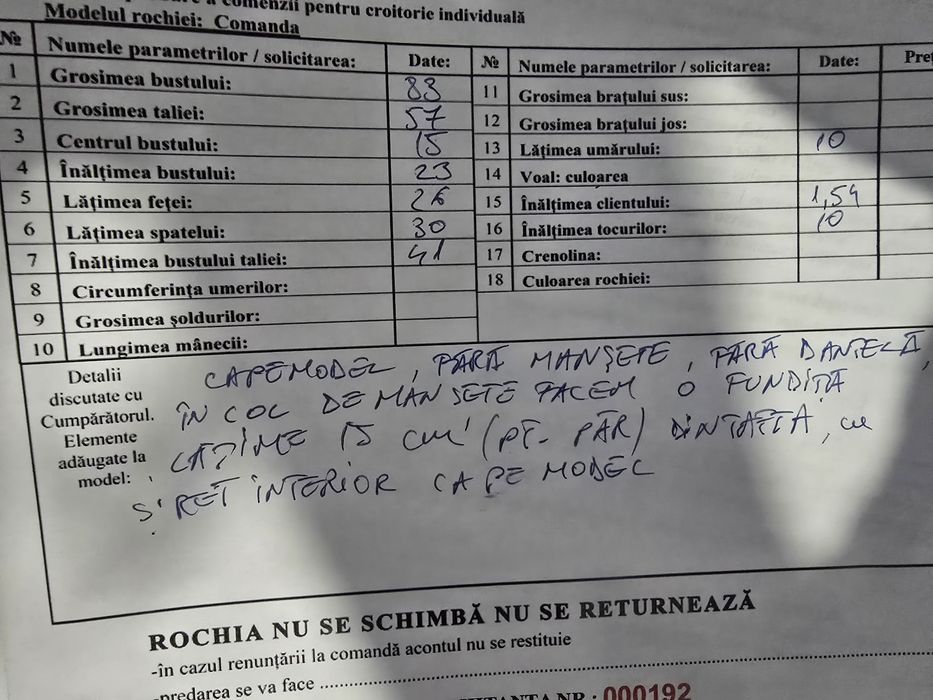 a comenzii pentru croitorie individuală
Modelul rochiei: Comanda
№ Numele parametrilor / solicitarea: Date:
1 Grosimea bustului: 83
2 Grosimea taliei: 57
3 Centrul bustului: 15
4 Înălțimea bustului: 23
5 Lățimea feței: 26
6 Lățimea spatelui: 30
7 Înălțimea bustului taliei: 41
8 Circumferința umerilor:
9 Grosimea șoldurilor:
10 Lungimea mânecii:
№ Numele parametrilor / solicitarea: Date: Preț
11 Grosimea brațului sus:
12 Grosimea brațului jos:
13 Lățimea umărului: 10
14 Voal: culoarea
15 Înălțimea clientului: 1,54
16 Înălțimea tocurilor: 10
17 Crenolina:
18 Culoarea rochiei:
Detalii
discutate cu
Cumpărătorul.
Elemente
adăugate la
model:
CA PE MODEL, FĂRĂ MANȘETE, FĂRĂ DANTELĂ,
ÎN LOC DE MANȘETE FACEM O FUNDIȚĂ
LAȚIME 15 cm (PT. PĂR) DIN TAFTA, cu
ȘIRET INTERIOR CA PE MODEL
ROCHIA NU SE SCHIMBĂ NU SE RETURNEAZĂ
-în cazul renunțării la comandă acontul nu se restituie
-predarea se va face
NR.: 000192